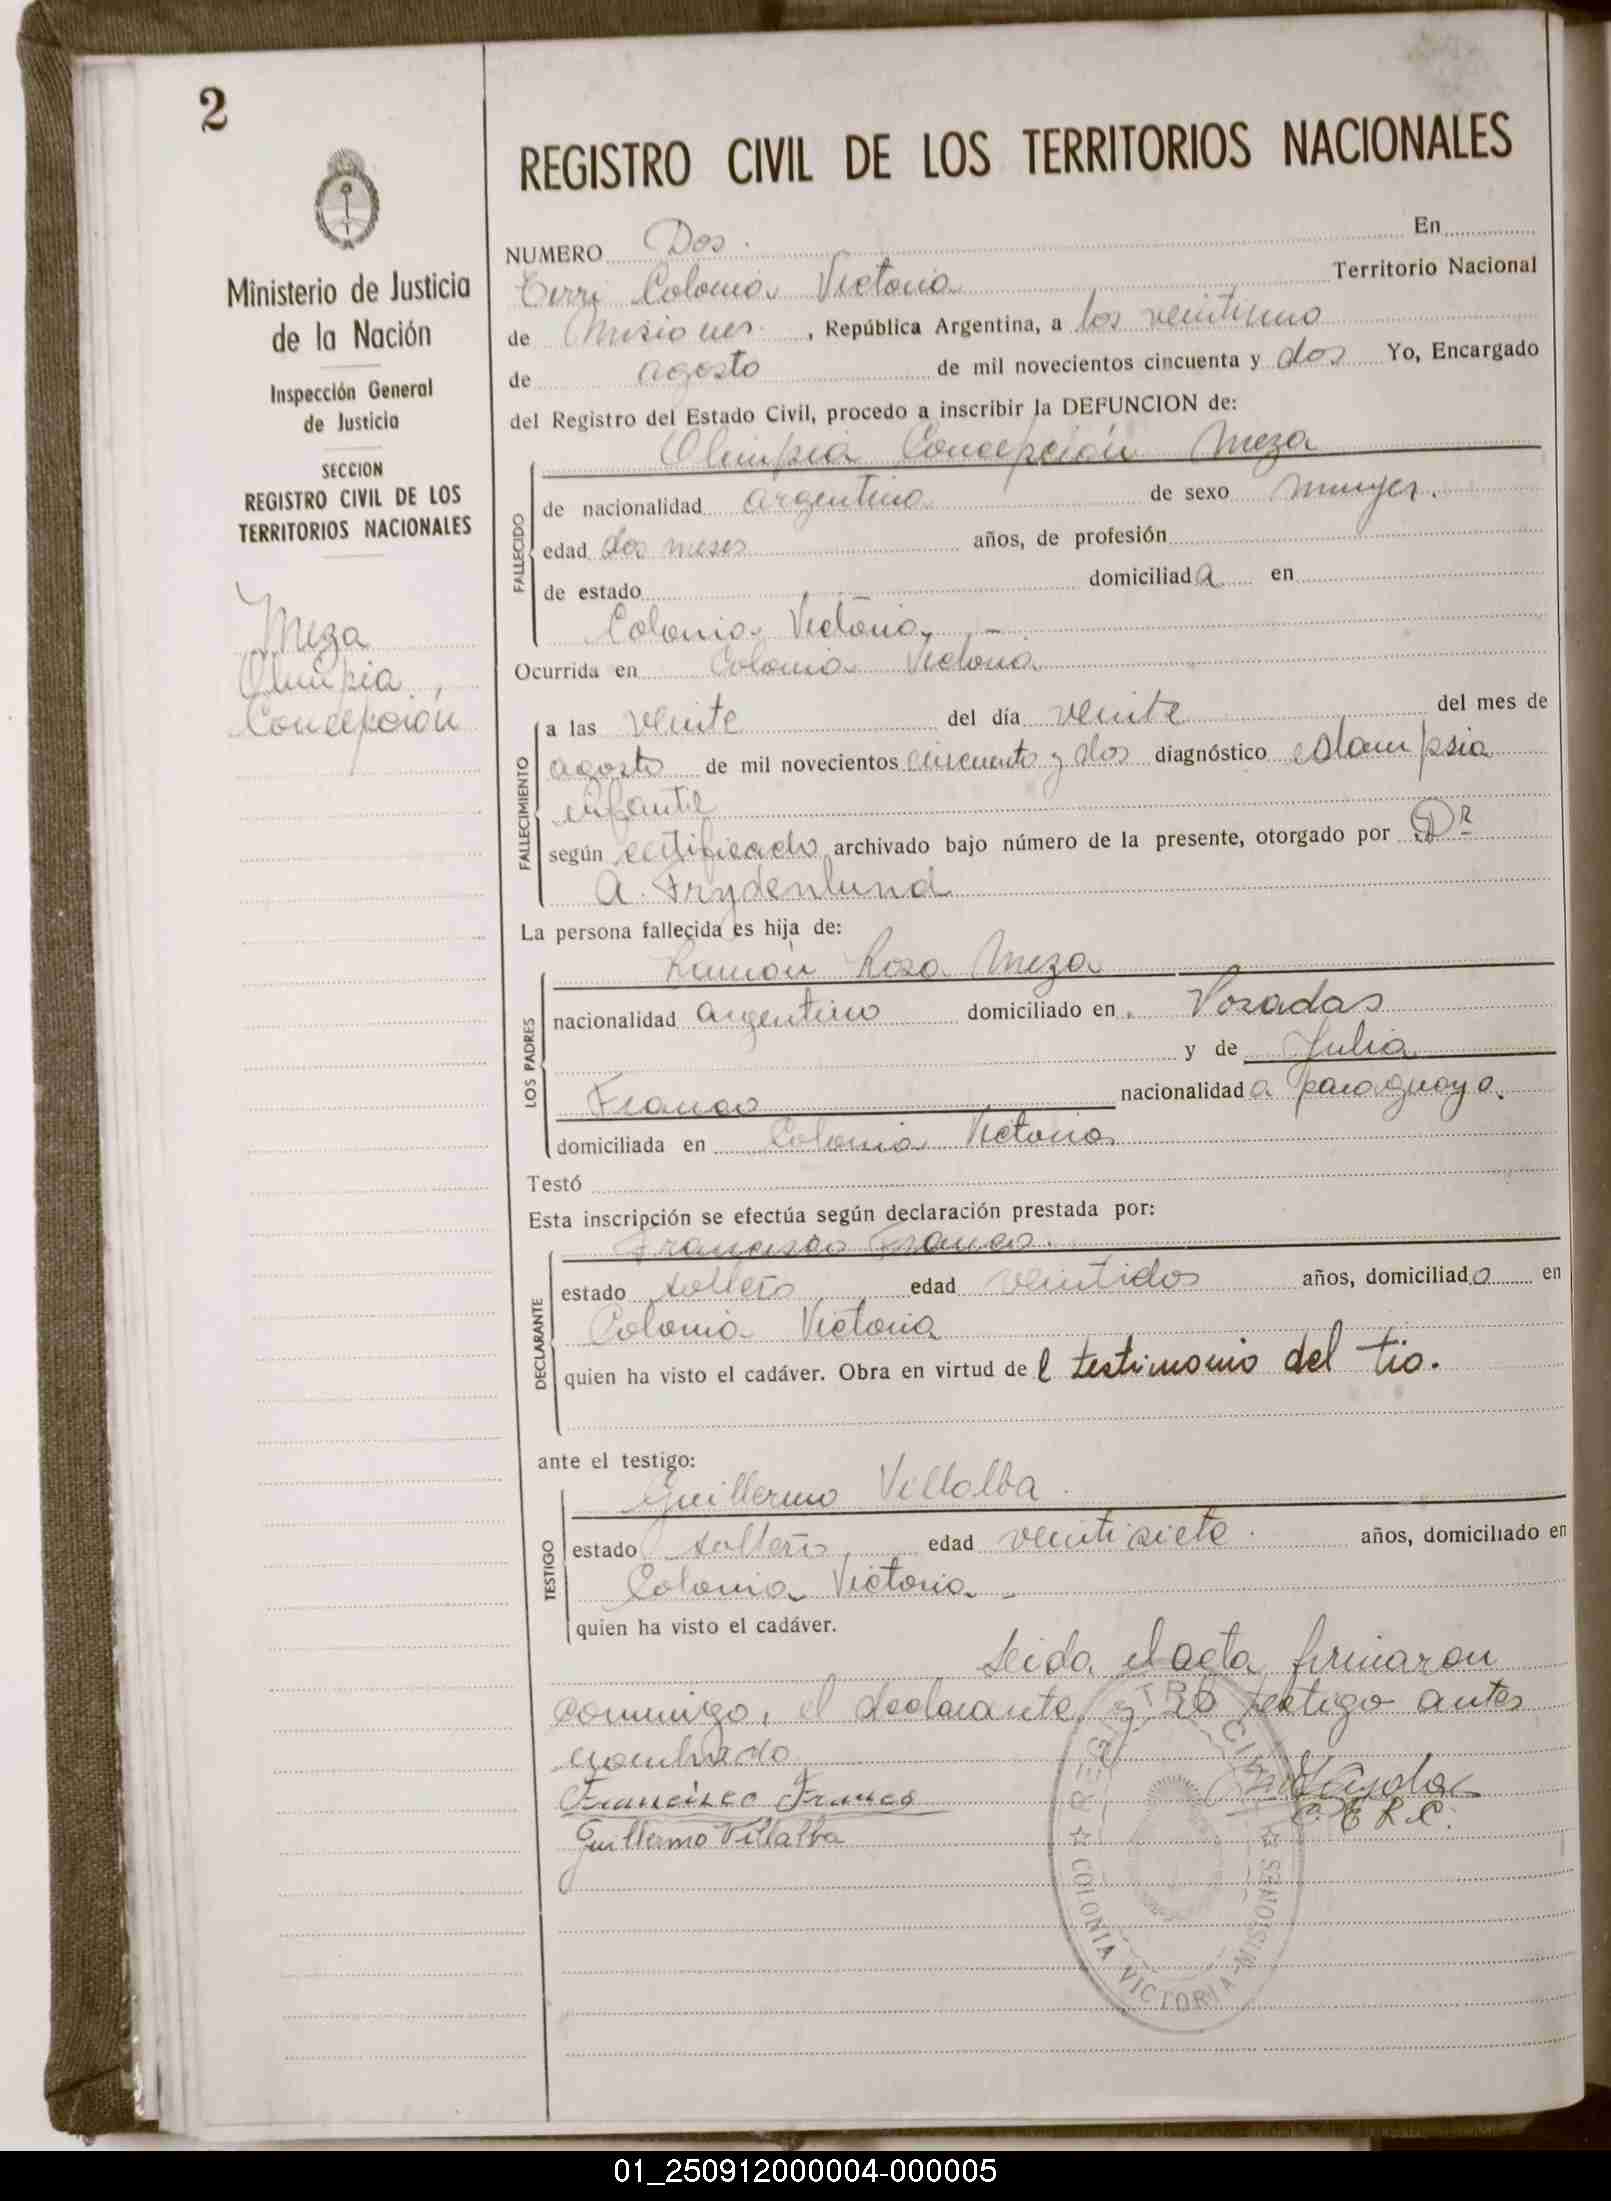 2
Ministerio de Justicia
de la Nación
Inspección General
de Justicia
SECCION
REGISTRO CIVIL DE LOS
TERRITORIOS NACIONALES
Meza
Olimpia
Concepción
REGISTRO CIVIL DE LOS TERRITORIOS NACIONALES
NUMERO Dos. En
Colonia Victoria Territorio Nacional
de Misiones, República Argentina, a los veintiuno
de agosto de mil novecientos cincuenta y dos Yo, Encargado
del Registro del Estado Civil, procedo a inscribir la DEFUNCION de:
Olimpia Concepción Meza
FALLECIDO
de nacionalidad argentina de sexo mujer.
edad dos meses años, de profesión
de estado domiciliada en
Colonia Victoria, -
Ocurrida en Colonia Victoria
FALLECIMIENTO
a las veinte del día veinte del mes de
agosto de mil novecientos cincuenta y dos diagnóstico eclampsia
infantil
según certificado archivado bajo número de la presente, otorgado por Dr
A. Frydenlund
La persona fallecida es hija de:
LOS PADRES
Ramón Rosa Meza
nacionalidad argentino domiciliado en Posadas
y de Julia
Franco nacionalidad a paraguaya.
domiciliada en Colonia Victoria
Testó
Esta inscripción se efectúa según declaración prestada por:
DECLARANTE
Francisco Franco.
estado soltero edad veintidos años, domiciliado en
Colonia Victoria
quien ha visto el cadáver. Obra en virtud del testimonio del tio.
ante el testigo:
TESTIGO
Guillermo Villalba.
estado soltero, edad veintisiete. años, domiciliado en
Colonia Victoria -
quien ha visto el cadáver.
Leida el acta, firmaron
conmigo, el declarante y el testigo antes
nombrado
Francisco Franco
Guillermo Villalba
E. R. C.
REGISTRO CIVIL
COLONIA VICTORIA - MISIONES
01_250912000004-000005